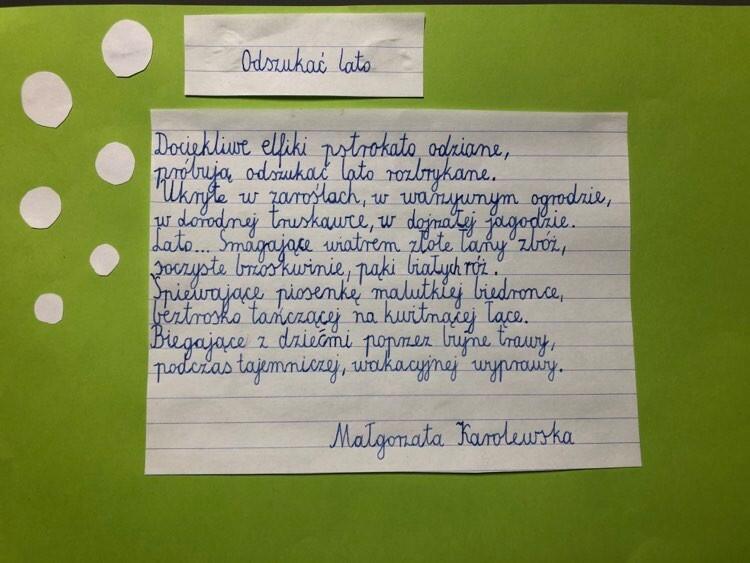 Odszukać lato
Dociekliwe elfiki pstrokato odziane,
próbują odszukać lato rozbrykane.
Ukryte w zaroślach, w warzywnym ogrodzie,
w dorodnej truskawce, w dojrzałej jagodzie.
Lato... Smagające wiatrem złote łany zbóż,
soczyste brzoskwinie, pąki białych róż.
Śpiewające piosenkę malutkiej biedronce,
beztrosko tańczącej na kwitnącej łące.
Biegające z dziećmi poprzez bujne trawy,
podczas tajemniczej, wakacyjnej wyprawy.
Małgorzata Karolewska